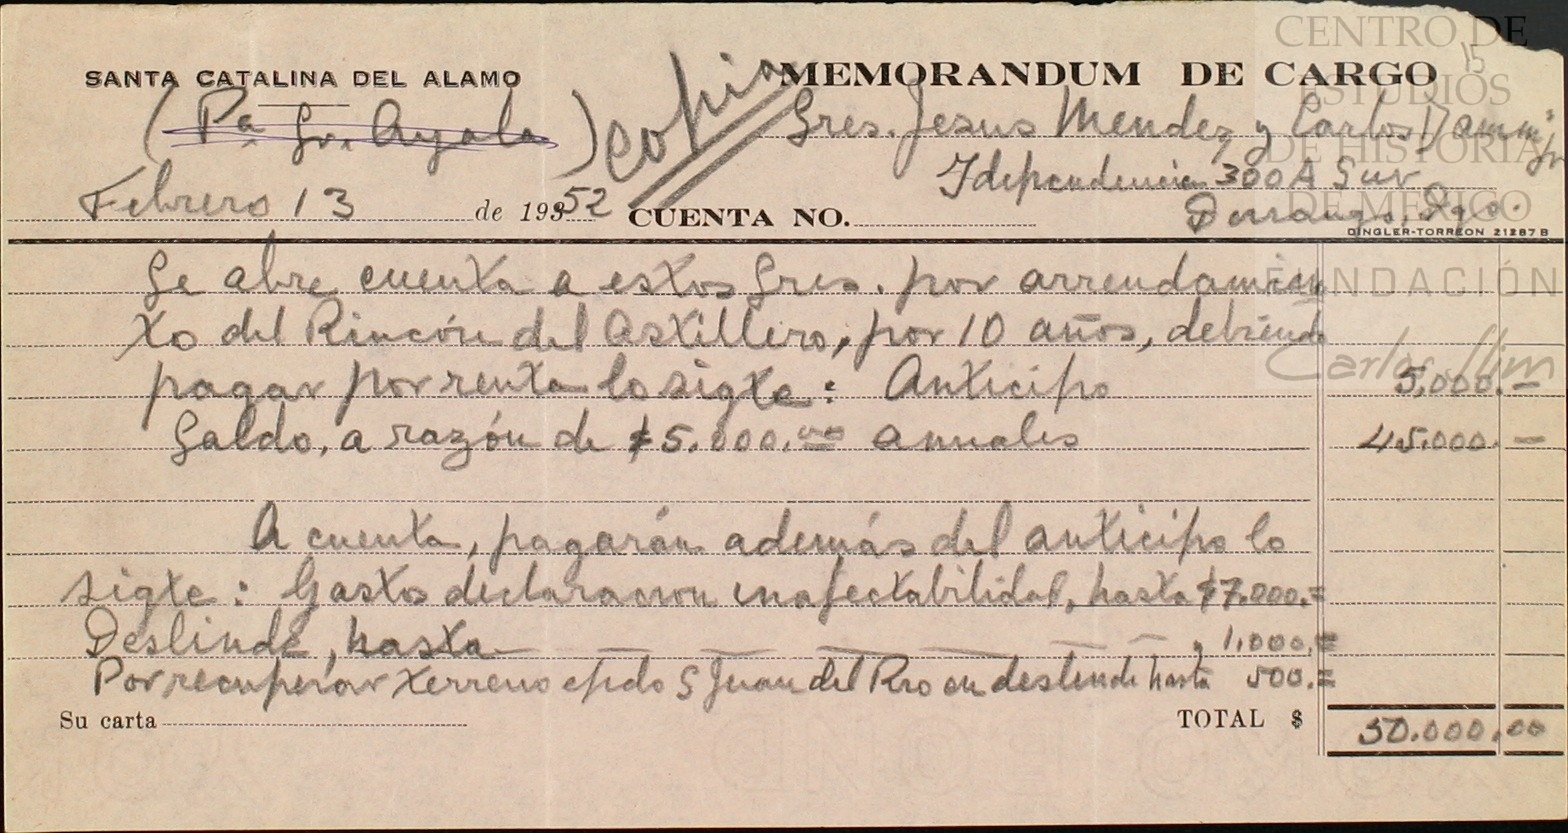 SANTA CATALINA DEL ALAMO
MEMORANDUM DE CARGO
15
(Pa. Sr. Ayala)
copia
Sres. Jesus Mendez y Carlos Damm Jr
Idependencia 300 A Sur
Durango, Dgo.
Febrero 13 de 1952
CUENTA NO.
DINGLER-TORREON 21287 B
Se abre cuenta a estos Sres. por arrendamien
to del Rincón del Astillero, por 10 años, debiendo
pagar por renta lo sigte: Anticipo 5,000.—
Saldo, a razón de $5.000.00 anuales 45.000.—
A cuenta, pagarán además del anticipo lo
sigte: Gastos declaracion inafectabilidad, hasta $7.000.=
Deslinde, hasta — — — — — — " 1.000.=
Por recuperar terreno ejido S Juan del Rio en deslinde hasta 500.=
Su carta
TOTAL $ 50.000.00
CENTRO DE
ESTUDIOS
DE HISTORIA
DE MÉXICO
FUNDACIÓN
Carlos Slim